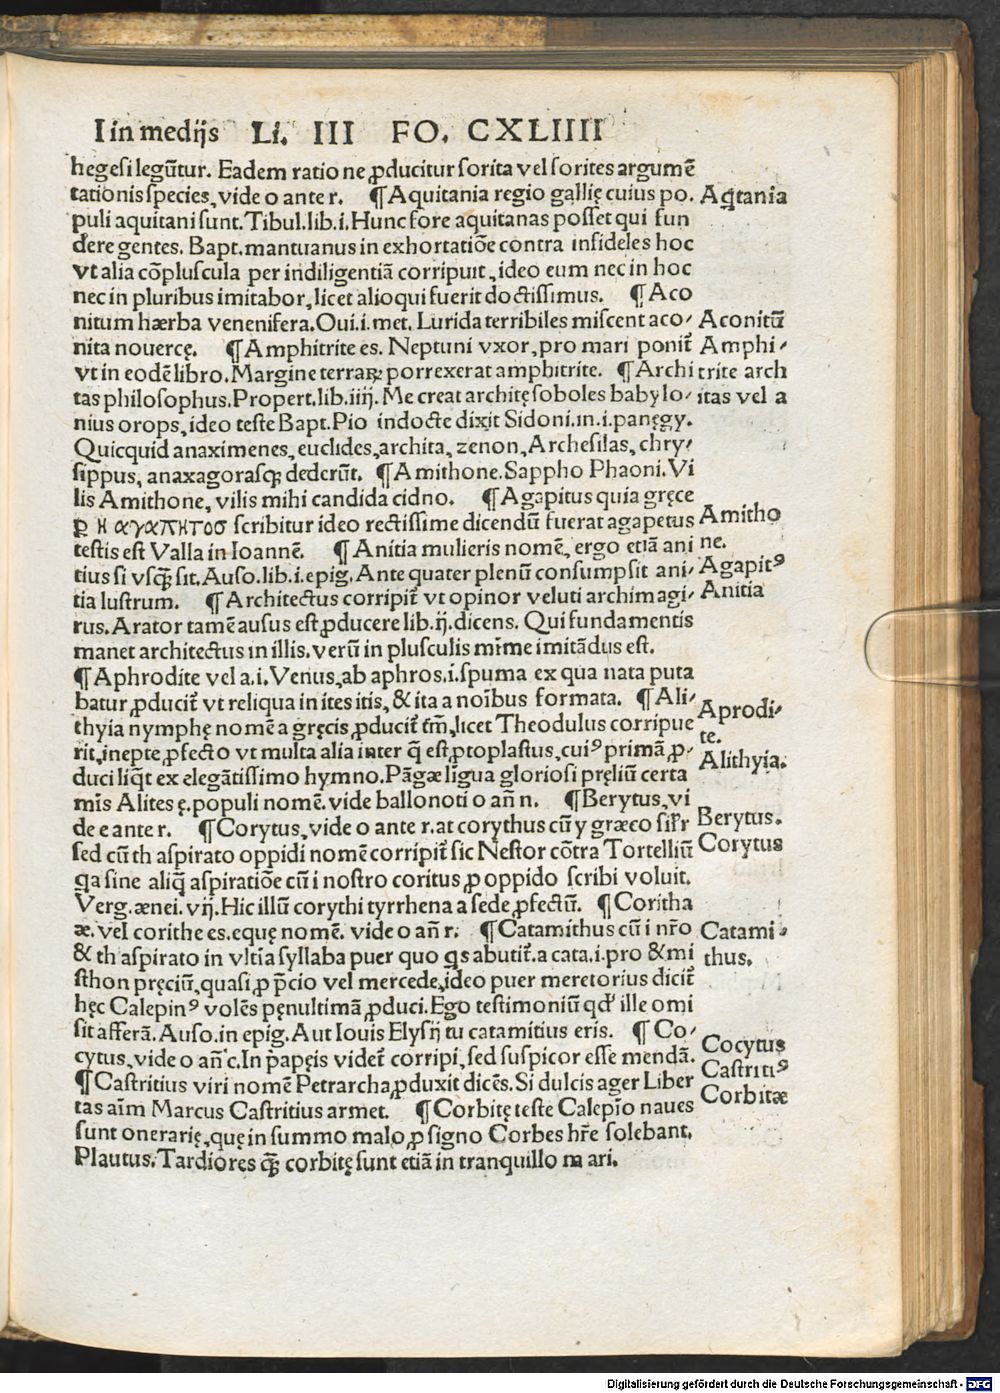 I in medijs Li. III FO. CXLIIII
hegesi legūtur. Eadem ratione ꝓducitur sorita vel sorites argumē
tationis species, vide o ante r. ¶Aquitania regio gallię cuius po.
puli aquitani sunt. Tibul.lib.i. Hunc fore aquitanas posset qui fun
dere gentes. Bapt. mantuanus in exhortatiōe contra infideles hoc
vt alia cōpluscula per indiligentiā corripuit, ideo eum nec in hoc
nec in pluribus imitabor, licet alioqui fuerit doctissimus. ¶Aco
nitum hærba venenifera. Oui.i.met. Lurida terribiles miscent aco/
nita nouercę. ¶Amphitrite es. Neptuni vxor, pro mari ponit᷑
vt in eodē libro. Margine terraꝝ porrexerat amphitrite. ¶Archi
tas philosophus. Propert.lib.iiij. Me creat archítę soboles babylo/
nius orops, ideo teste Bapt. Pio indocte dixit Sidoni.in.i.panęgy.
Quicquid anaximenes, euclides, archita, zenon, Archesilas, chry/
sippus, anaxagorasqꝫ dederūt. ¶Amithone. Sappho Phaoni. Vi
lis Amithone, vilis mihi candida cidno. ¶Agapitus quia gręce
ꝑ H αγαπHτοσ scribitur ideo rectissime dicendū fuerat agapetus
testis est Valla in Ioannē. ¶Anitia mulieris nomē, ergo etiā ani
tius si vsꝙ̄ sit. Auso.lib.i.epig. Ante quater plenū consumpsit ani/
tia lustrum. ¶Architectus corripit᷑ vt opinor veluti archimagi/
rus. Arator tamē ausus est ꝓducere lib.ij.dicens. Qui fundamentis
manet architectus in illis. verū in plusculis mīme imitādus est.
¶Aphrodite vel a.i. Venus, ab aphros.i. spuma ex qua nata puta
batur ꝓducit᷑ vt reliqua in ites itis, & ita a noībus formata. ¶Ali/
thyia nymphę nomē a gręcis ꝓducit᷑ tm̄, licet Theodulus corripue
rit, inepte ꝓfecto vt multa alia inter q̄ est ꝓtoplastus, cuiꝰ primā ꝓ/
duci liq̄t ex elegātissimo hymno. Pāgæ līgua gloriosi pręliū certa
mīs Alites ę. populi nomē. vide ballonoti o an̄ n. ¶Berytus, vi
de e ante r. ¶Corytus, vide o ante r. at corythus cū y græco sil̄r
sed cū th aspirato oppidi nomē corripit᷑ sic Nestor cōtra Tortelliū
ꝗa sine aliq̄ aspiratiōe cū i nostro coritus ꝓ oppido scribi voluit.
Verg. ænei. vij. Hic illū corythi tyrrhena a sede ꝓfectū. ¶Coritha
æ. vel corithe es. equę nomē. vide o an̄ r. ¶Catamithus cū i nr̄o
& th aspirato in vltīa syllaba puer quo ꝗs abutit᷑. a cata.i. pro & mi
sthon pręciū, quasi ꝓ p̄cio vel mercede, ideo puer meretorius dicit᷑
hęc Calepinꝰ volēs pęnultimā ꝓduci. Ego testimoniū qd' ille omi
sit afferā. Auso. in epig. Aut Iouis Elysij tu catamitius eris. ¶Co/
cytus, vide o an̄ c. In p̄apęis videt᷑ corripi, sed suspicor esse mendā.
¶Castritius viri nomē Petrarcha ꝓduxit dicēs. Si dulcis ager Liber
tas aīm Marcus Castritius armet. ¶Corbitę teste Calepīo naues
sunt onerarię, quę in summo malo ꝓ signo Corbes hr̄e solebant.
Plautus. Tardiores ꝙ̄ corbitę sunt etiā in tranquillo mari.
Aꝗtania
Aconitū
Amphi/
trite arch
itas vel a
Amitho
ne.
Agapitꝰ
Anitia
Aprodi/
te.
Alithyia.
Berytus.
Corytus
Catami/
thus.
Cocytus
Castritiꝰ
Corbitæ
Digitalisierung gefördert durch die Deutsche Forschungsgemeinschaft - DFG